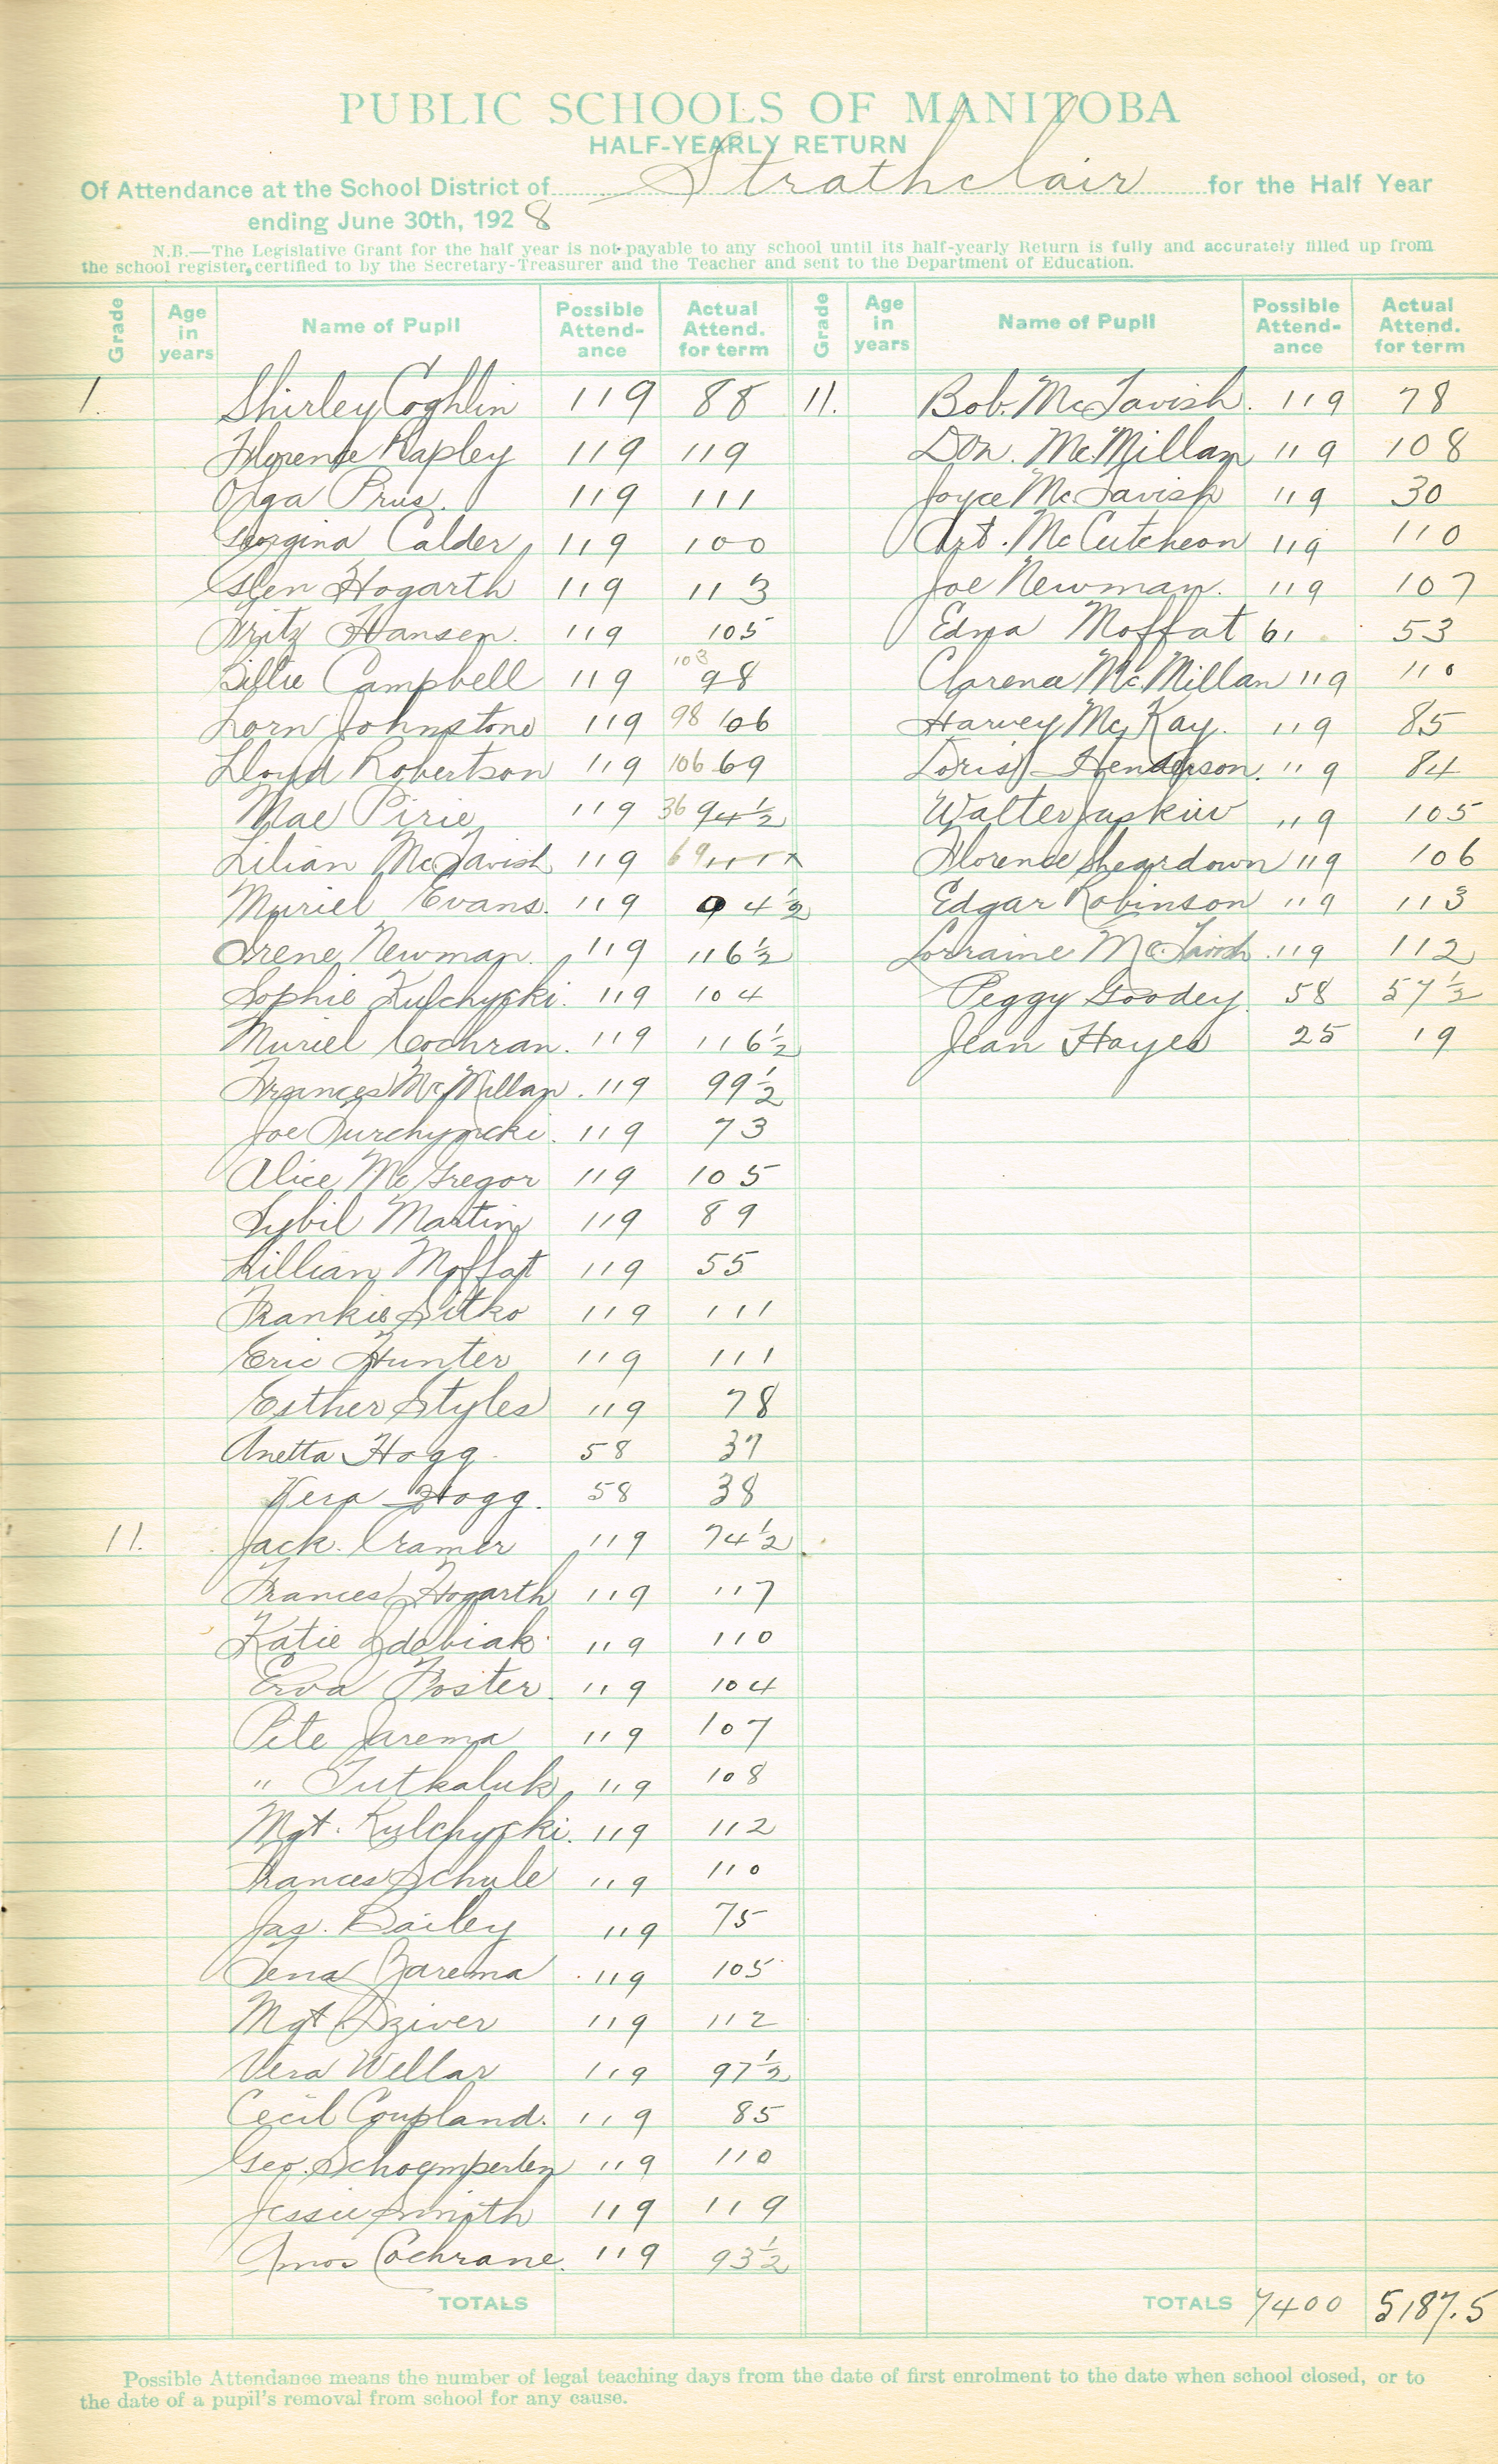 PUBLIC SCHOOLS OF MANITOBA
HALF-YEARLY RETURN
Of Attendance at the School District of Strathclair for the Half Year
ending June 30th, 1928
N.B.—The Legislative Grant for the half year is not payable to any school until its half-yearly Return is fully and accurately filled up from
the school register, certified to by the Secretary-Treasurer and the Teacher and sent to the Department of Education.
Grade Age in years Name of Pupil Possible Attend-ance Actual Attend. for term
1. Shirley Coghlin 119 88
Florence Rapley 119 119
Olga Prus. 119 111
Georgina Calder 119 100
Glen Hogarth 119 113
Fritz Hansen. 119 105
Billie Campbell 119 103 98
Lorn Johnstone 119 98 106
Lloyd Robertson 119 106 69
Mae Pirie 119 36 94½
Lilian McTavish 119 69
Muriel Evans. 119 4½
Irene Newman. 119 116½
Sophie Kulchycki. 119 104
Muriel Cochran. 119 116½
Frances McMillan. 119 99½
Joe 119 73
Alice McGregor 119 105
Sybil Martin 119 89
Lillian Moffat 119 55
Frankie Sitko 119 111
Eric Hunter 119 111
Esther Styles 119 78
Anetta Hogg. 58 37
Vera Hogg. 58 38
11. Jack. Cramer 119 74½
Frances Hogarth 119 117
Katie Zdebiak. 119 110
Erva Foster. 119 104
Pete Jarema 119 107
" Tutkaluk 119 108
Mgt. Kulchycki. 119 112
Frances Schule 119 110
Jas. Bailey 119 75
Lena Jarema 119 105
Mgt 119 112
Vera Wellar 119 97½
Cecil Coupland. 119 85
Geo. Schoemperlen 119 110
Jessie Smith 119 119
Amos Cochrane. 119 93½
TOTALS
Grade Age in years Name of Pupil Possible Attend-ance Actual Attend. for term
11. Bob. McTavish. 119 78
Don. McMillan 119 108
Joyce McTavish 119 30
Art. McCutcheon 119 110
Joe Newman. 119 107
Edna Moffat 61 53
Clarena McMillan 119 110
Harvey McKay. 119 85
Doris Henderson. 119 84
Walter Juskiw 119 105
Florence Sheardown 119 106
Edgar Robinson 119 113
Lorraine McTavish. 119 112
Peggy Goodey. 58 57½
Jean Hayes 25 19
TOTALS 7400 5187.5
Possible Attendance means the number of legal teaching days from the date of first enrolment to the date when school closed, or to
the date of a pupil's removal from school for any cause.